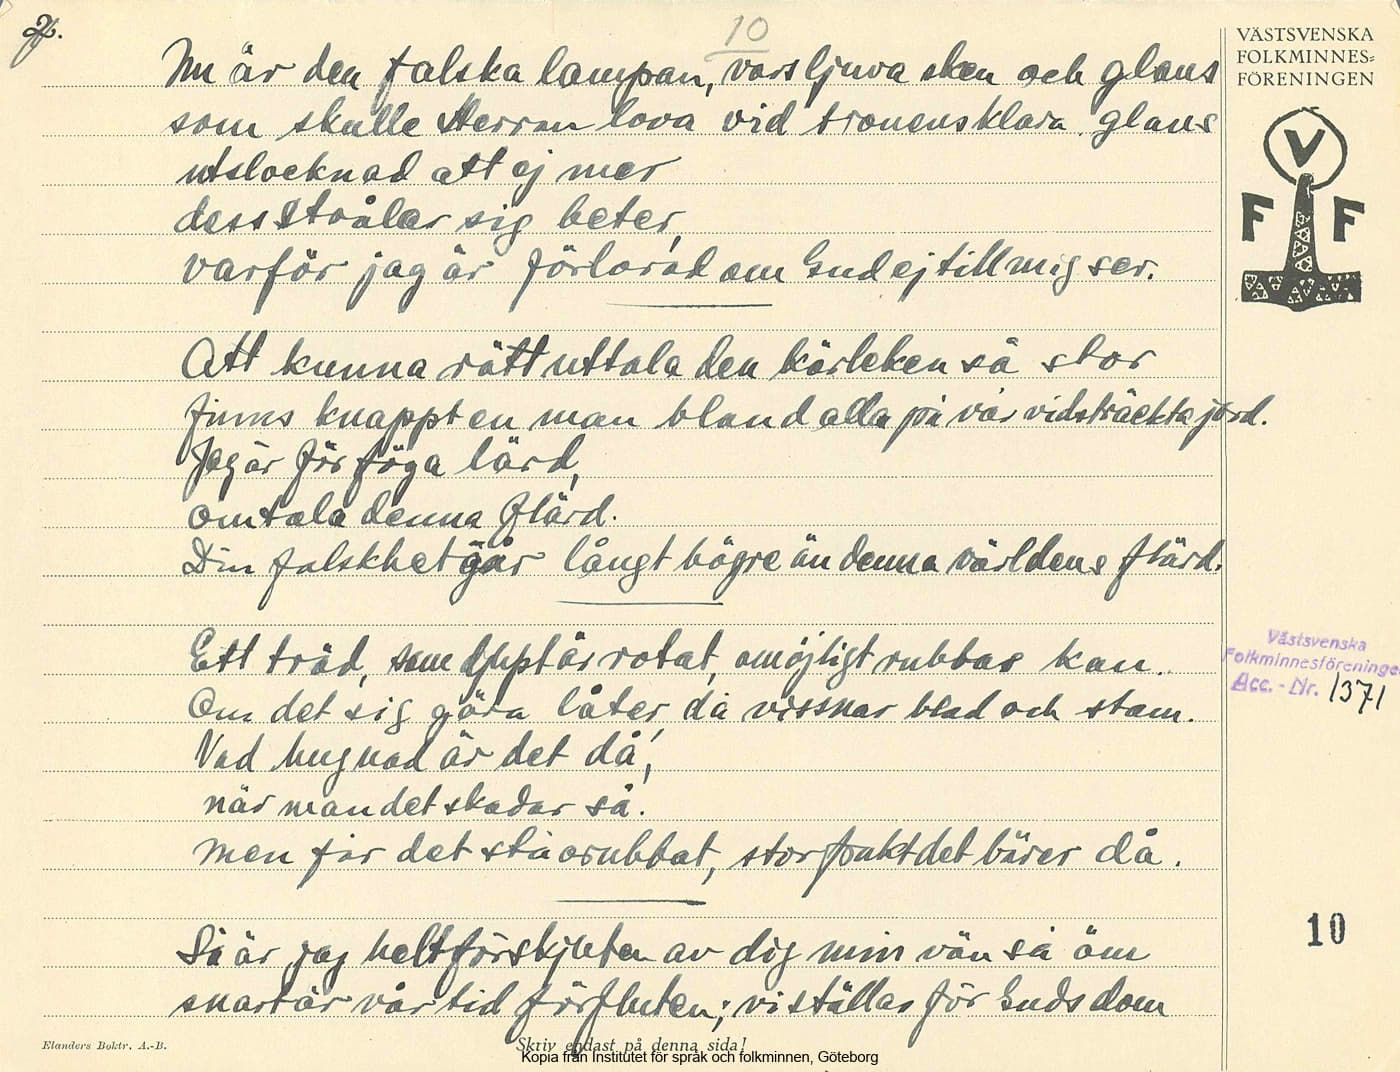 2.
10
VÄSTSVENSKA
FOLKMINNES=
FÖRENINGEN
V
F F
Nu är den falska lampan, vars ljuva sken och glans
som skulle Herran lova vid tronens klara glans
utslocknad att ej mer
dess strålar sig beter,
varför jag är förlorad om Gud ej till mig ser.
Att kunna rätt uttala den kärleken så stor
finns knappt en man bland alla på vår vidsträckta jord.
Jag är för föga lärd,
omtala denna flärd.
Din falskhet går långt högre än denna världens flärd.
Ett träd, som djupt är rotat, omöjligt rubbas kan.
Om det sig göra låter, då vissnar blad och stam.
Vad hugnad är det då,
när man det skadar så.
Men får det stå orubbat, stor frukt det bärer då.
Västsvenska
Folkminnesföreningen
Acc. - Nr. 1371
10
Så är jag helt förskjuten av dig min vän så öm
snart är vår tid förfluten; vi ställas för Guds dom
Elanders Boktr. A.-B.
Skriv endast på denna sida!
Kopia från Institutet för språk och folkminnen, Göteborg